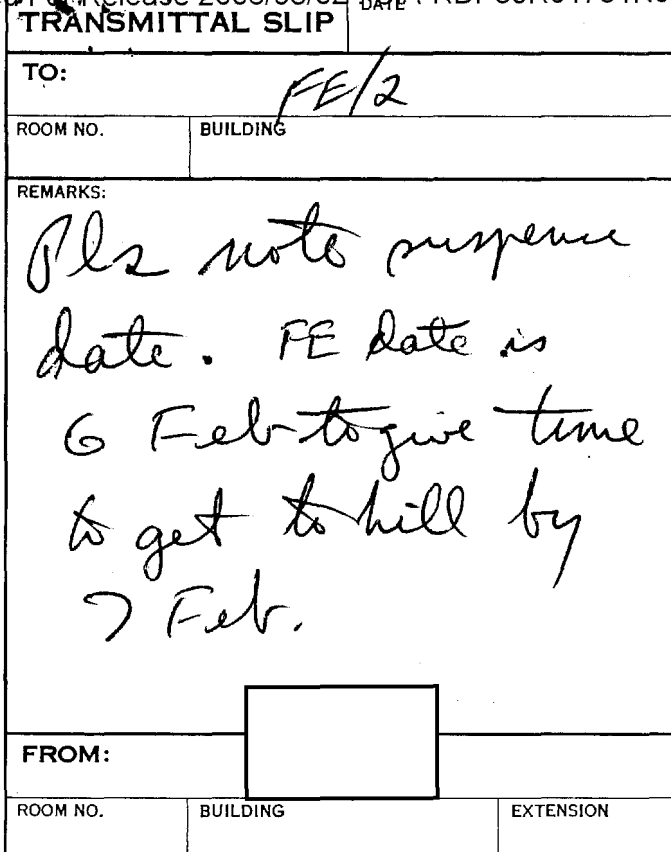 Release
TRANSMITTAL SLIP
DATE
TO:
FE/2
ROOM NO. BUILDING
REMARKS:
Pls note suspense
date. FE date is
6 Feb to give time
to get to hill by
7 Feb.
FROM:
ROOM NO. BUILDING EXTENSION